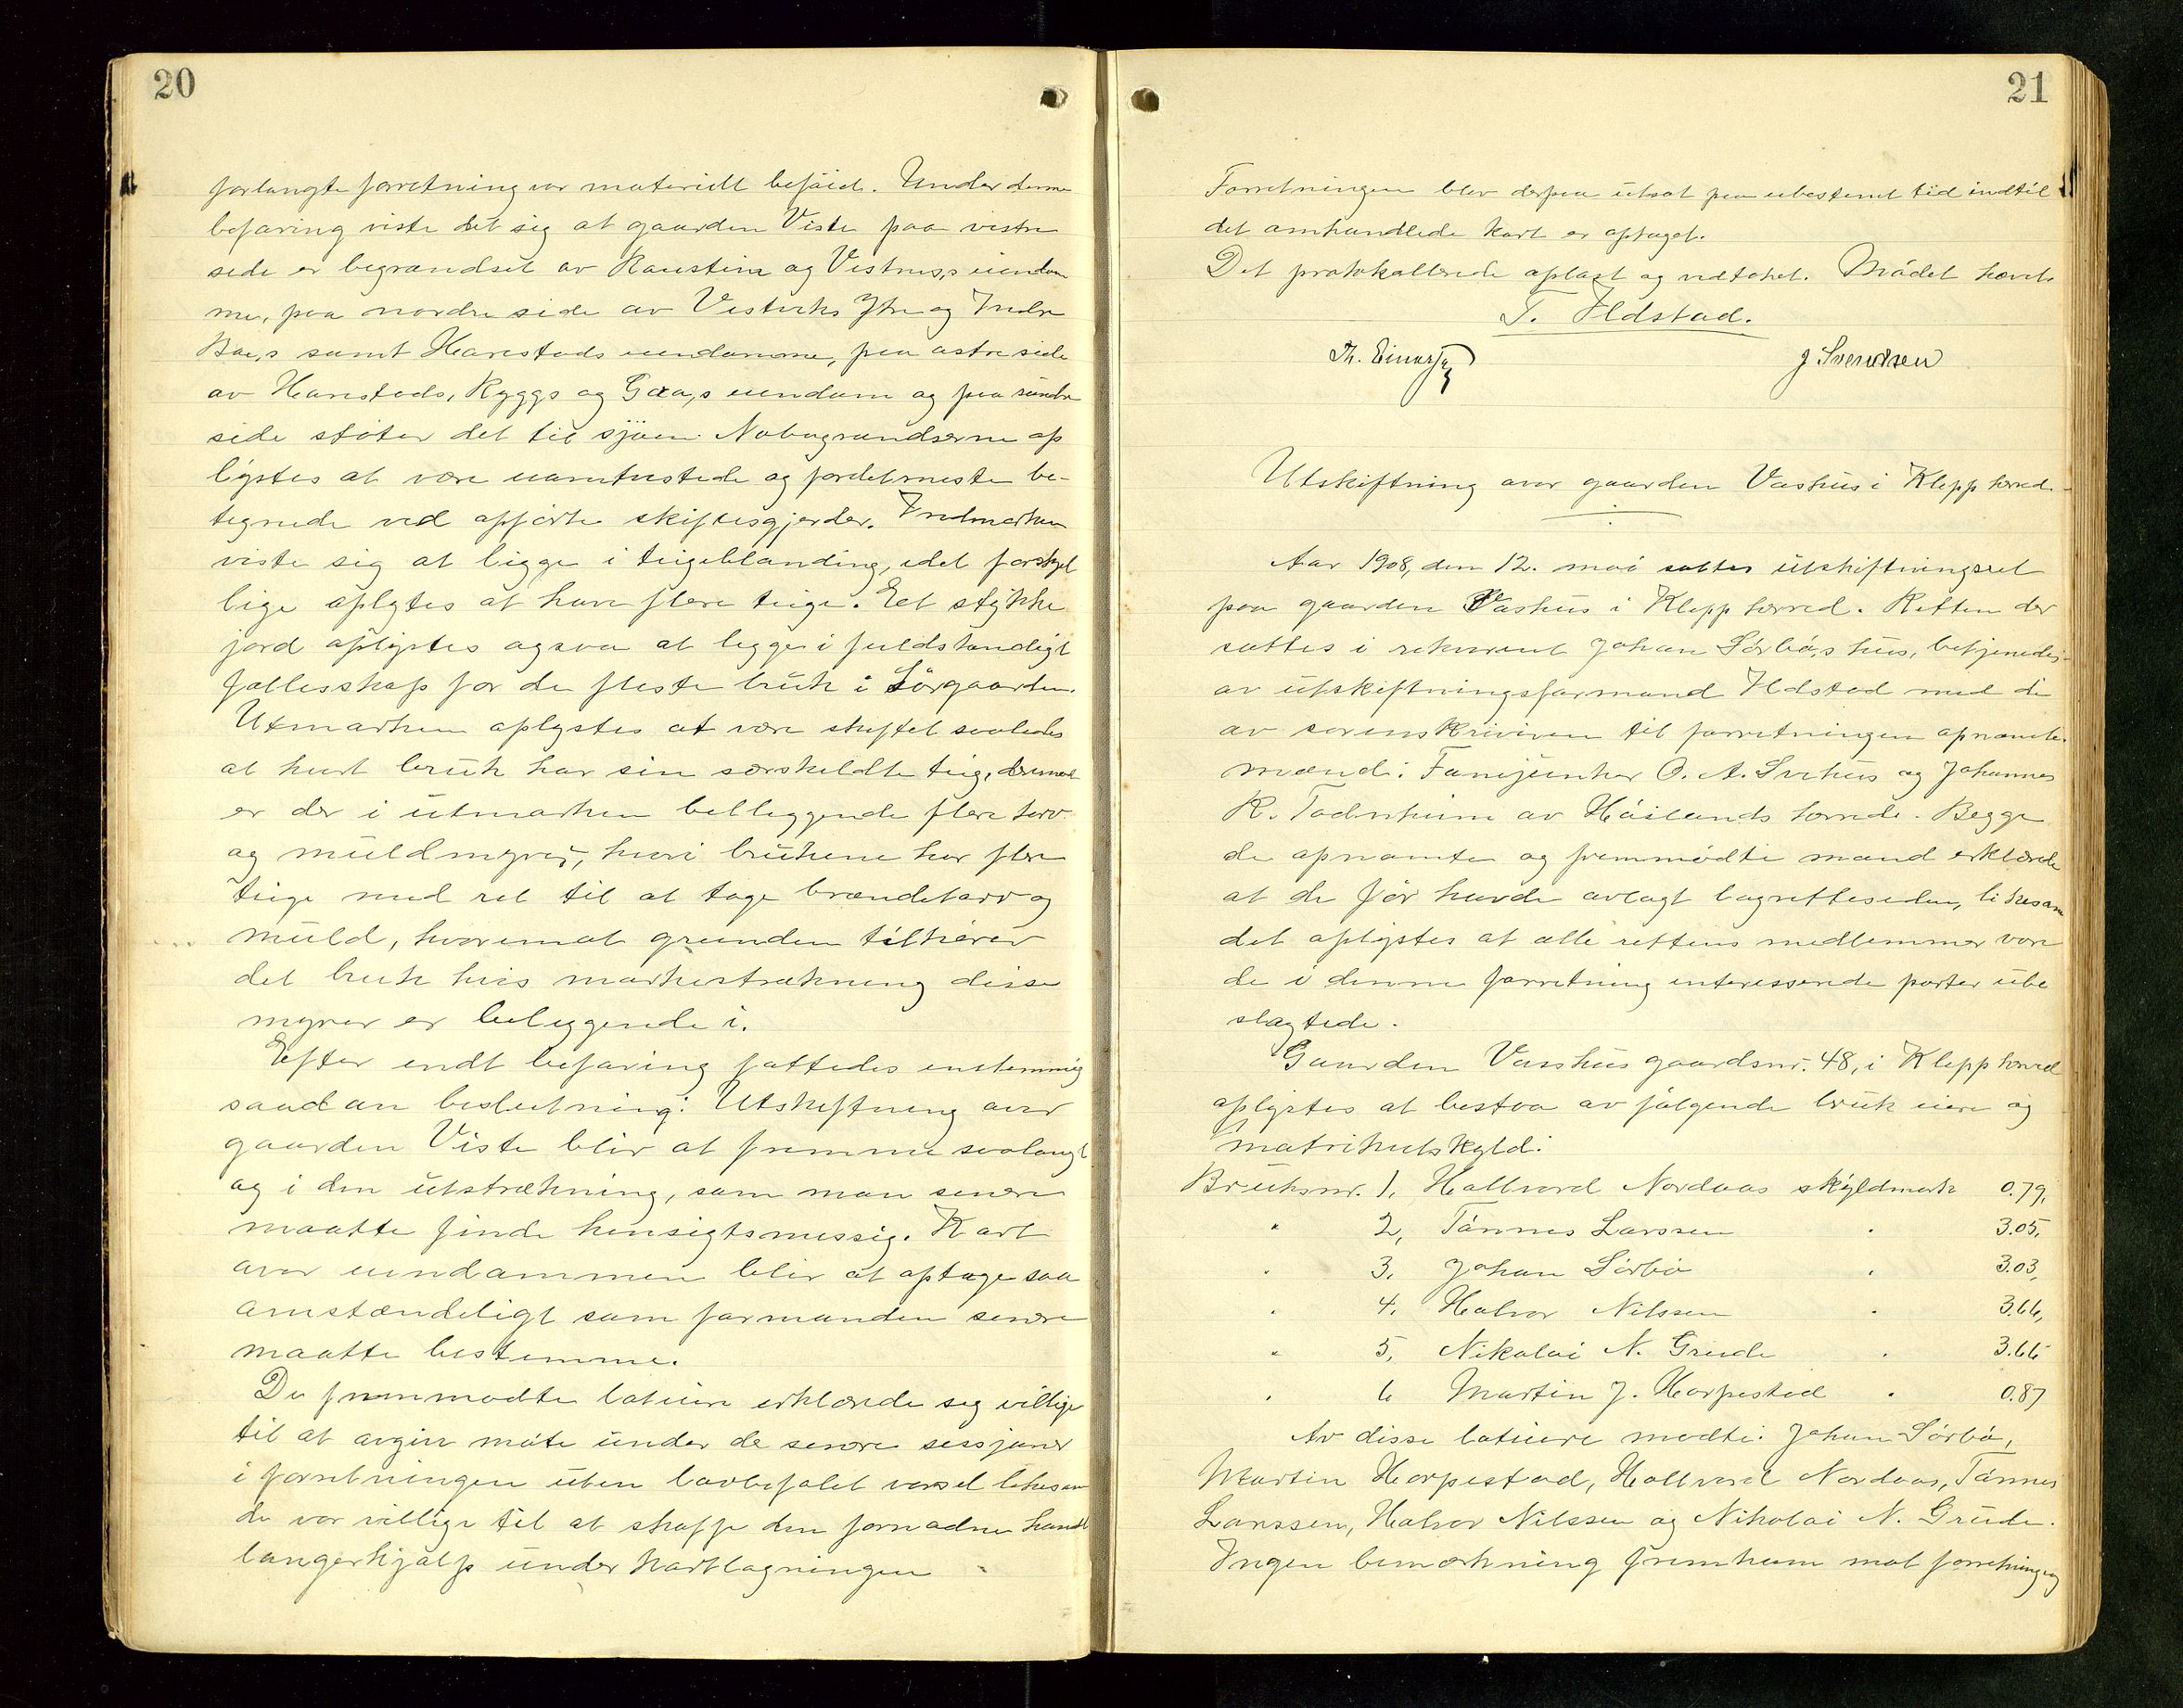 20
forlangte forretning var materielt beføiet. Under denne
befaring viste det sig at gaarden Viste paa vestre
side er begrændset av Raustein og Vestnes,s eiendom
me, paa nordre side av Vestviks Ytre og Indre
Bøe,s samt Harestads eiendomme, paa østre side
av Harestads, Ryggs og Goa,s eiendom og paa søndre
side støter det til sjøen. Nabogrændserne op
lystes at være uomtvistede og fordetmeste be-
tegnede ved opførte skiftesgjerder. Indmarken
viste sig at ligge i teigeblanding, idet forskjel
lige oplystes at have flere teige. Et stykke
jord oplystes ogsaa at ligge i fuldstændigt
fællesskap for de fleste bruk i Sørgaarden.
Utmarken oplystes at være skiftet saaledes
at hvert bruk har sin særskildte teig, derimot
er der i utmarken beliggende flere torv
og muldmyrer, hvori brukene har flere
teige med ret til at tage brændetorv og
muld, hvorimot grunden tilhører
det bruk hvis markestrækning disse
myrer er beliggende i.
Efter endt befaring fattedes enstemmig
saadan beslutning: Utskiftning over
gaarden Viste blir at fremme saalangt
og i den utstrækning, som man senere
maatte finde hensigtsmessig. Kart
over eiendommen blir at optage saa
omstændeligt som formanden senere
maatte bestemme.
De fremmødte lotteiere erklærede sig villige
til at avgive møte under de senere sessjoner
i forretningen uten lovbefalet varsel likesom
de var villige til at skaffe den fornødne hand
langerhjælp under kartlægningen
21
Forretningen blev derpaa utsat paa ubestemt tid indtil
det omhandlede kart er optaget.
Det protokollerede oplæst og vedtaket. Mødet hævet.
T. Ildstad.
Th. Einarsen J Svendsen
Utskiftning over gaarden Vashus i Klepp herred.
Aar 1908, den 12. mai sattes utskiftningsret
paa gaarden Vashus i Klepp herred. Retten der
sattes i rekvirent Johan Sørbø,s hus, betjenedes
av utskiftningsformand Ildstad med de
av sorenskriveren til forretningen opnævnte
mænd: Fanejunker O. A. Svihus og Johannes
R. Todnheim av Høilands herrede. Begge
de opnævnte og fremmødte mænd erklærede
at de før havde avlagt lagretteseden, likesom
det oplystes at alle rettens medlemmer vare
de i denne forretning interesserede parter ube
slægtede.
Gaarden Vasshus gaardsnr. 48, i Klepp herred
oplystes at bestaa av følgende bruk eiere og
matrikulskyld:
Bruksnr. 1, Hallvard Nordaas skyldmark 0.79,
" 2, Tønnes Larssen " 3.05,
" 3. Johan Sørbø " 3.03,
" 4. Halvor Nilssen " 3.66,
" 5, Nikolai N. Grude " 3.66
" 6 Martin J. Horpestad " 0.87
Av disse lotteiere mødte: Johan Sørbø,
Martin Horpestad, Hallvard Nordaas, Tønnes
Larssen, Halvor Nilssen og Nikolai N. Grude.
Ingen bemærkning fremkom mot forretningen